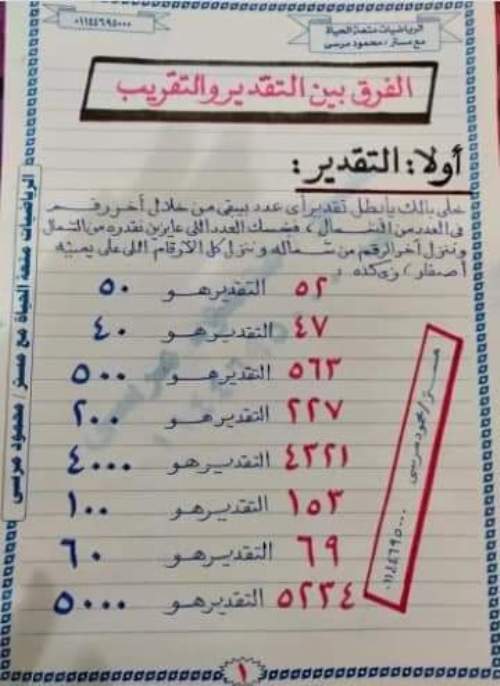 الرياضيات متعة الحياة
مع مستر / محمود مرسى
٠١١٤٤٦٩٥٠٠٠
الفرق بين التقدير والتقريب
أولا: التقدير:
خلى بالك يا بطل تقدير أى عدد بيبقى من خلال أخر رقم
فى العدد من الشمال، فبنمسك العدد اللى عايزين نقدره من الشمال
وننزل أخر الرقم من شماله وننزل كل الأرقام اللى على يمينه
أصفار، زى كده :
٥٢ التقدير هو ٥٠
٤٧ التقدير هو ٤٠
٥٦٣ التقدير هو ٥٠٠
٢٢٧ التقدير هو ٢٠٠
٤٢٢١ التقدير هو ٤٠٠٠
١٥٣ التقدير هو ١٠٠
٦٩ التقدير هو ٦٠
٥٢٣٤ التقدير هو ٥٠٠٠
مستر/ محمود مرسى
٠١١٤٤٦٩٥٠٠٠
الرياضيات متعة الحياة مع مستر / محمود مرسى
١